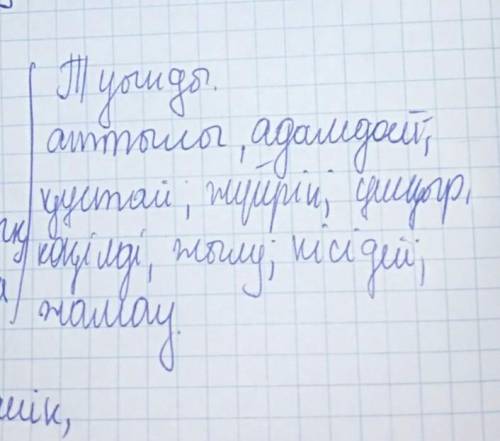 Туынды.
аттылы, адамдай,
құстай; жүйрік; ұшқыр,
көңілді, жылу; кісідей;
жамау.
шік,